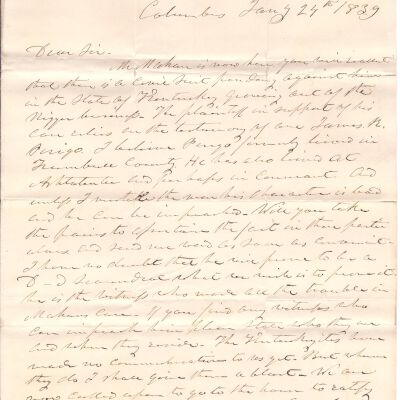 Columbus Jany 24th 1839
Dear Sir.
Mr Mahan is now here you will recollect
that there is a Civil Suit pending against him
in the State of Kentucky growing out of the
Nigger business. The plaintiff in support of his
case relies on the testimony of one James R.
Perigo, I believe Perigo formerly lived in
Trumbull County He has also lived at
Ashtabula and perhaps in Conneaut And
unless I mistake the man his character is bad
and he can be impeached. Will you take
the pains to ascertain the fact in those parts
alone and send me word as soon as convenient.
I have no doubt that he will prove to be a
D-d Scoundrel what we wish is to prove it
he is the witness who made all the trouble in
Mahans Case. If you find any witness who
can impeach him please state who they are
and where they reside. The Kentuckyites have
made no communication to us yet. But when
they do I shall give them a blast. We are
now called upon to go to the house to ratify